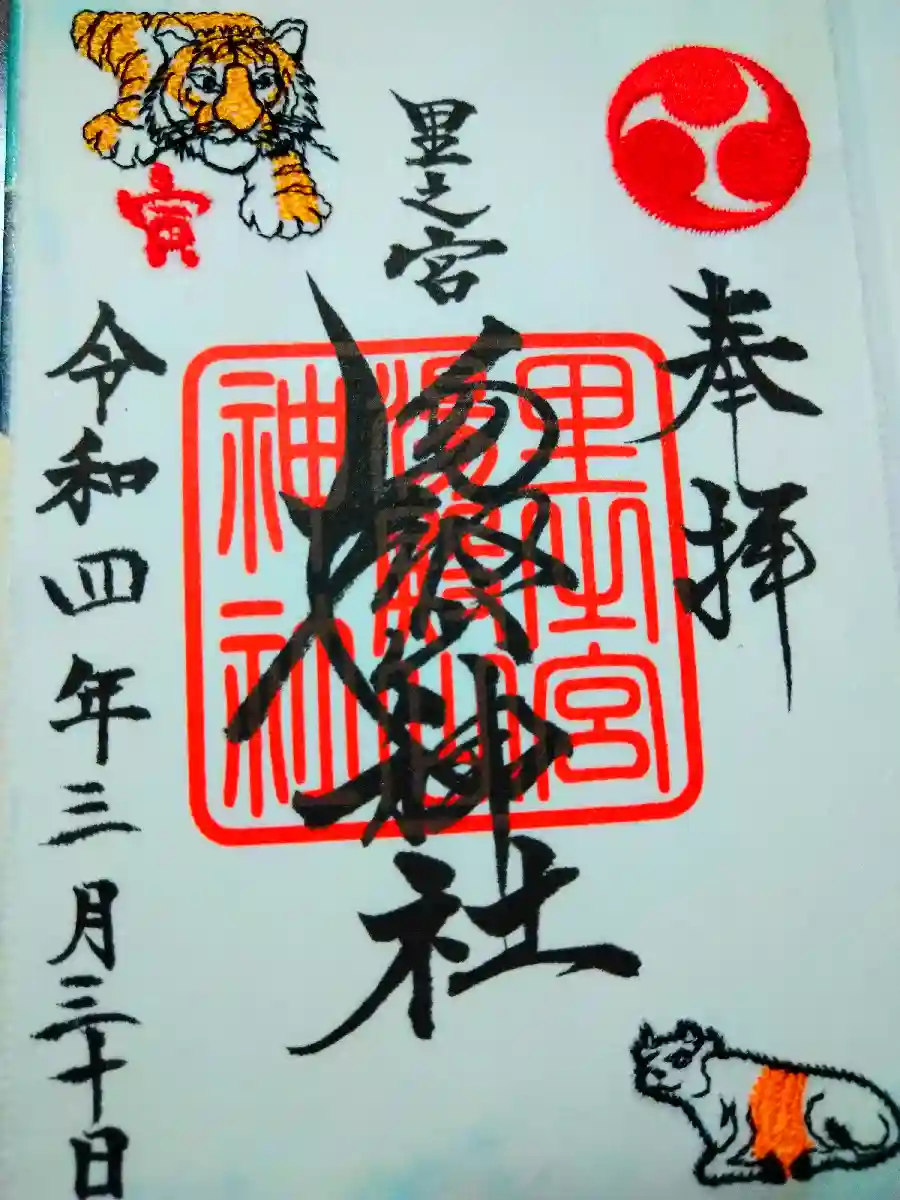 奉拝
里之宮
湯殿山神社
里之宮
湯殿山
神社
寅
令和四年三月三十日